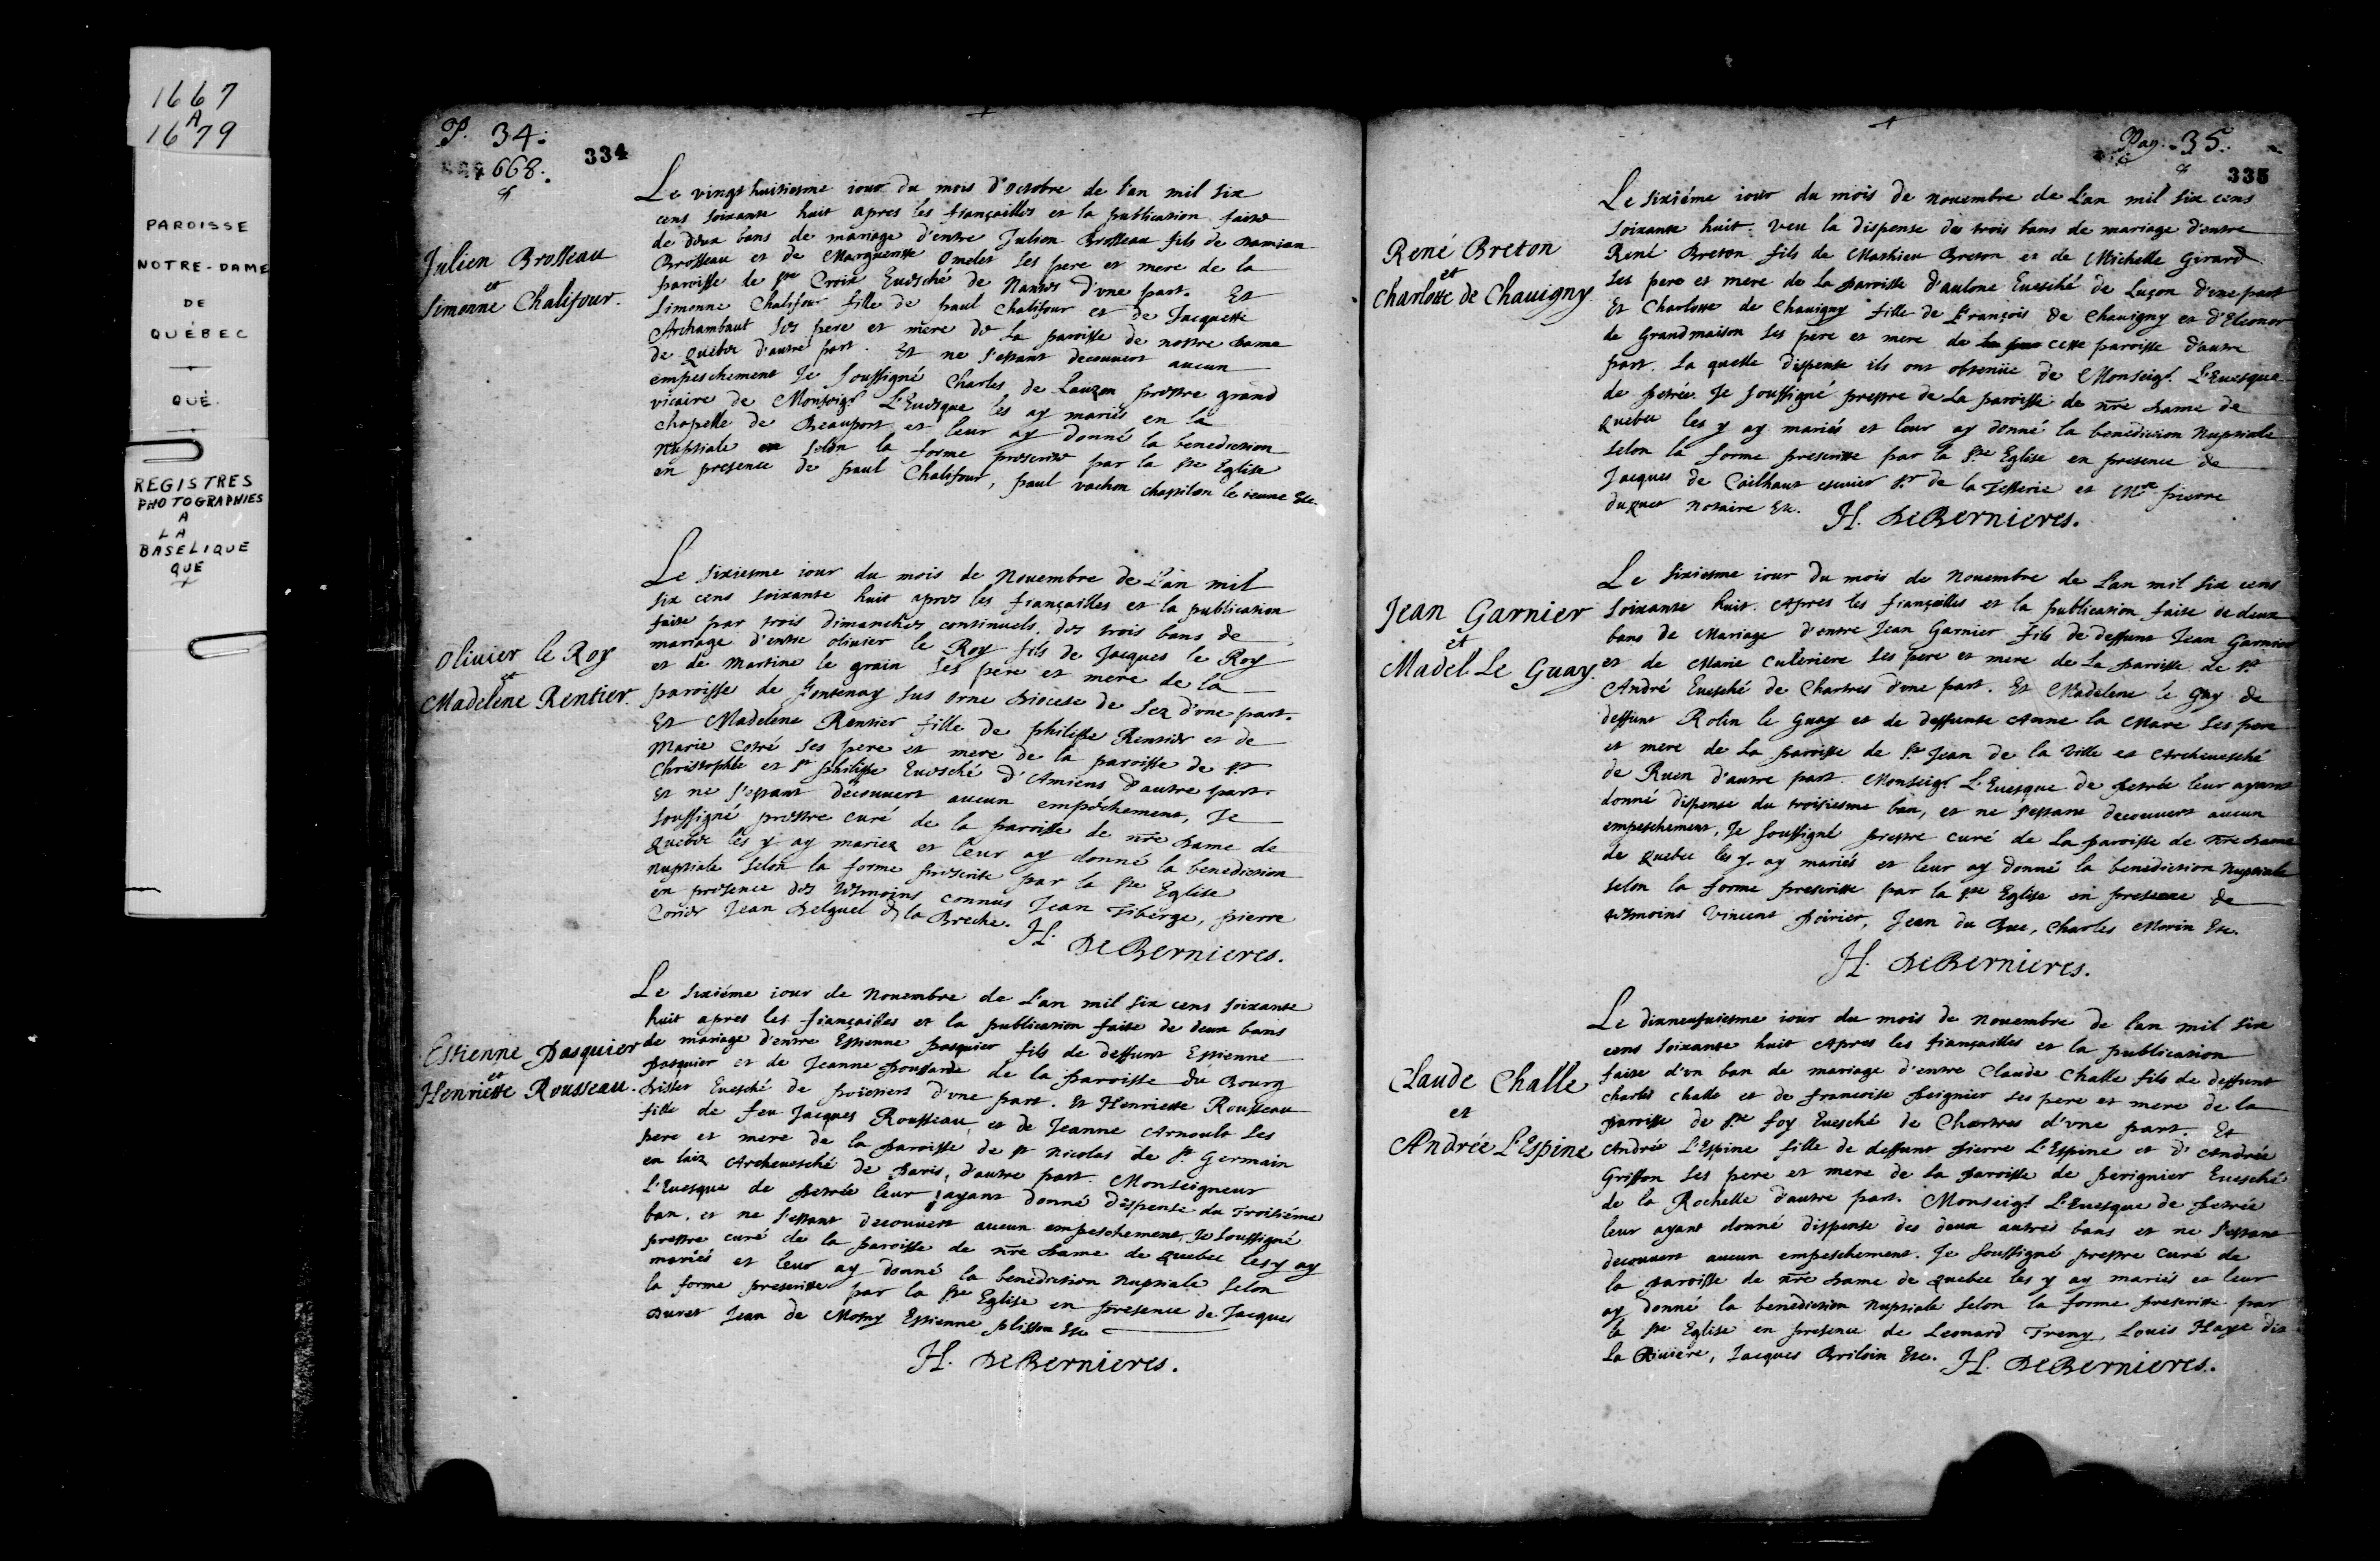 1667
A
1679
PAROISSE
NOTRE-DAME
DE
QUÉBEC
QUÉ.
REGISTRES
PHOTOGRAPHIES
A
LA
BASELIQUE
QUE
P. 34.
668.
334
Julien Brosseau
et
Simonne Chalifour.
Le vingt huitiesme iour du mois d'octobre de l'an mil six
cens soixante huit apres les fiançailles et la publication faite
de deux bans de mariage d'entre Julien Brosseau fils de Damian
Brosseau et de Marguerite Omelet ses pere et mere de la
paroisse de ste Croix Euesché de Nantes d'vne part. Et
Simonne Chalifour fille de paul Chalifour et de Jacquette
Archambaut ses pere et mere de la paroisse de nostre dame
de Quebec d'autre part. Et ne s'estant decouvert aucun
empeschement Je soussigné Charles de Lauzon prestre grand
vicaire de Monseigr L'Euesque les ay mariés en la
chapelle de Beauport et leur ay donné la benediction
nuptiale selon la forme prescrite par la ste Eglise
en presence de paul Chalifour, paul vachon chapelain le ieune &c.
Olivier le Roy
et
Madelene Rentier.
Le sixiesme iour du mois de Novembre de L'an mil
six cens soixante huit apres les fiançailles et la publication
faite par trois dimanches continuels des trois bans de
mariage d'entre olivier le Roy fils de Jacques le Roy
et de Martine le grain ses pere et mere de la
paroisse de Fontenay sus orne Diocese de Sez d'vne part.
Et Madelene Rentier fille de philippe Rentier et de
Marie Cotré ses pere et mere de la paroisse de st
Christophle et st philippe Euesché d'Amiens d'autre part.
Et ne s'estant découuert aucun empéchement, Je
soussigné prestre curé de la paroisse de nre dame de
Quebec les y ay mariez et leur ay donné la benediction
nuptiale selon la forme prescrite par la ste Eglise
en presence des tesmoins connus Jean Tiberge, pierre
Jean Delguel de la Breche. H. DeBernieres.
Estienne Pasquier
et
Henriette Rousseau.
Le sixiéme iour de Novembre de L'an mil six cens soixante
huit apres les fiançailles et la publication faite de deux bans
de mariage d'entre Estienne pasquier fils de deffunt Estienne
pasquier et de Jeanne poussarde de la paroisse du Bourg
Euesché de poictiers d'vne part. Et Henriette Rousseau
fille de feu Jacques Rousseau et de Jeanne Arnoult ses
pere et mere de la paroisse de st Nicolas de st Germain
en laiz Archeuesché de Paris, d'autre part. Monseigneur
L'Euesque de petrée leur ayant donné dispense du Troisiéme
ban, et ne s'estant decouuert aucun empeschement, Je soussigné
prestre curé de la paroisse de nre dame de Quebec les y ay
mariés et leur ay donné la benediction nuptiale selon
la forme prescritte par la ste Eglise en presence de Jacques
Duret Jean de Mosny Estienne plisson &c
H. DeBernieres.
Pag. 35.
335
René Breton
et
Charlotte de Chauigny
Le sixiéme iour du mois de Novembre de L'an mil six cens
soixante huit. veu la dispense des trois bans de mariage d'entre
René Breton fils de Mathieu Breton et de Michelle Girard
ses pere et mere de la paroisse d'aulone Euesché de Luçon d'vne part
Et Charlotte de Chauigny fille de François de Chauigny et d'Eleonor
de Grandmaison ses pere et mere de cette paroisse d'autre
part. La quelle dispense ils ont obtenüe de Monseigr L'Euesque
de petrée. Je soussigné prestre de la paroisse de nre dame de
Quebec les y ay mariés et leur ay donné la benediction Nuptiale
selon la forme prescritte par la ste Eglise en presence de
Jacques de Cailhaut escuier sr de la Tesserie et Mre pierre
duquet notaire &c. H. DeBernieres.
Jean Garnier
et
Madel. Le Guay.
Le sixiesme iour du mois de Novembre de L'an mil six cens
soixante huit. Apres les fiançailles et la publication faite de deux
bans de Mariage d'entre Jean Garnier fils de deffunt Jean Garnier
et de Marie Culeriere ses pere et mere de la paroisse de st
André Euesché de Chartres d'vne part. Et Madelene le Guy de
deffunt Rolin le Guay et de deffunte Anne la Mare ses pere
et mere de la paroisse de st Jean de la ville et Archeuesché
de Ruen d'autre part. Monseigr L'Euesque de petrée leur ayant
donné dispense du troisiesme ban, et ne s'estant decouuert aucun
empeschement, Je soussigné prestre curé de la paroisse de nre dame
de Quebec les y ay mariés et leur ay donné la benediction Nuptiale
selon la forme prescritte par la ste Eglise en presence de
tesmoins Vincent poirier, Jean du Buc, Charles Morin &c.
H. DeBernieres.
Claude Challe
et
Andrée L'Espine
Le dixneufuiesme iour du mois de Novembre de l'an mil six
cens soixante huit Apres les fiançailles et la publication
faite d'vn ban de mariage d'entre Claude Challe fils de deffunt
charles challe et de francoise peignier ses pere et mere de la
paroisse de ste foy Euesché de Chartres d'vne part. Et
Andrée L'Espine fille de deffunt pierre L'Espine et d'Andrée
Griffon ses pere et mere de la paroisse de perignier Euesché
de la Rochelle d'autre part. Monseigr L'Euesque de petrée
leur ayant donné dispense des deux autres bans et ne s'estant
decouuert aucun empeschement. Je soussigné prestre curé de
la paroisse de nre dame de Quebec les y ay mariés et leur
ay donné la benediction nuptiale selon la forme prescritte par
la ste Eglise en presence de Leonard Treny, Louis Haye dit
La Riuiere, Jacques Briloin &c. H. DeBernieres.